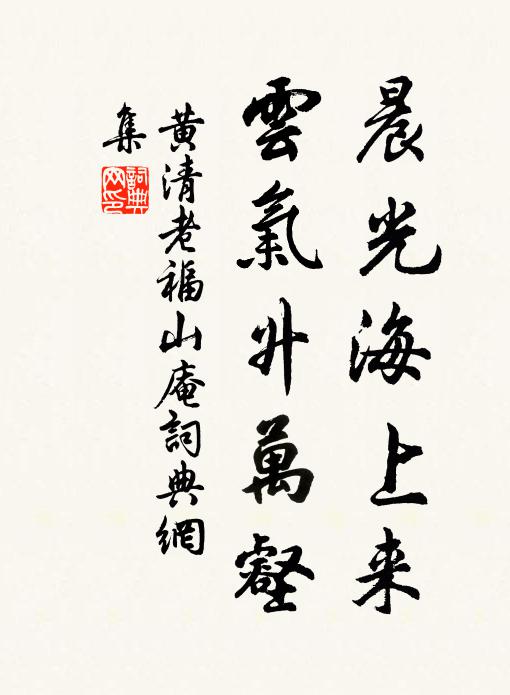 晨光海上来
雲氣升萬壑
黄清老福山庵詞典網
集
詞典
网印